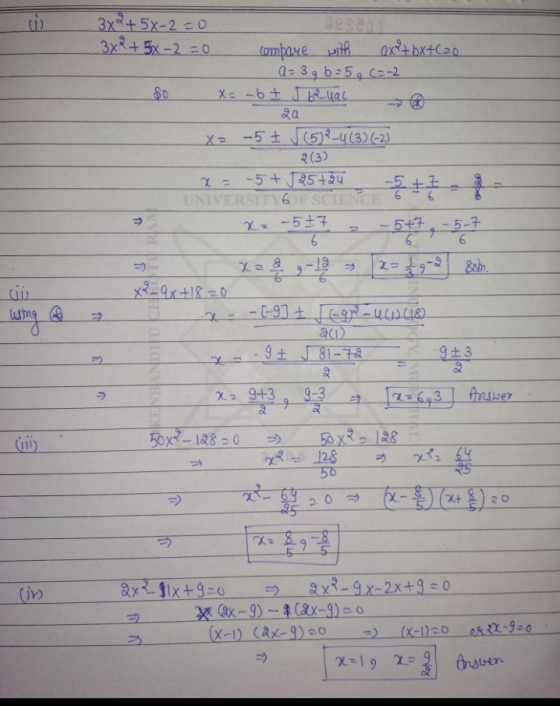 (i) 3x²+5x-2=0
3x²+5x-2=0 compare with ax²+bx+c=0
a=3, b=5, c=-2
So x = (-b ± √(b²-4ac))/2a → (*)
x = (-5 ± √((5)²-4(3)(-2)))/2(3)
x = (-5+√(25+24))/6 = -5/6 ± 7/6 = 2/6 =
UNIVERSITY OF SCIENCE
⇒ x = (-5±7)/6 = (-5+7)/6, (-5-7)/6
⇒ x = 2/6, -12/6 ⇒ x = 1/3, -2 Soln.
(ii) x²-9x+18=0
Using (*) ⇒ x = (-[-9] ± √((-9)²-4(1)(18)))/2(1)
⇒ x = (9 ± √(81-72))/2 = (9±3)/2
⇒ x = (9+3)/2, (9-3)/2 ⇒ x=6,3 Answer
(iii) 50x²-128=0 ⇒ 50x²=128
⇒ x² = 128/50 ⇒ x² = 64/25
⇒ x² - 64/25 = 0 ⇒ (x-8/5)(x+8/5)=0
⇒ x = 8/5, -8/5
(iv) 2x²-11x+9=0 ⇒ 2x²-9x-2x+9=0
⇒ x(2x-9)-1(2x-9)=0
⇒ (x-1)(2x-9)=0 ⇒ (x-1)=0 or 2x-9=0
⇒ x=1, x=9/2 Answer